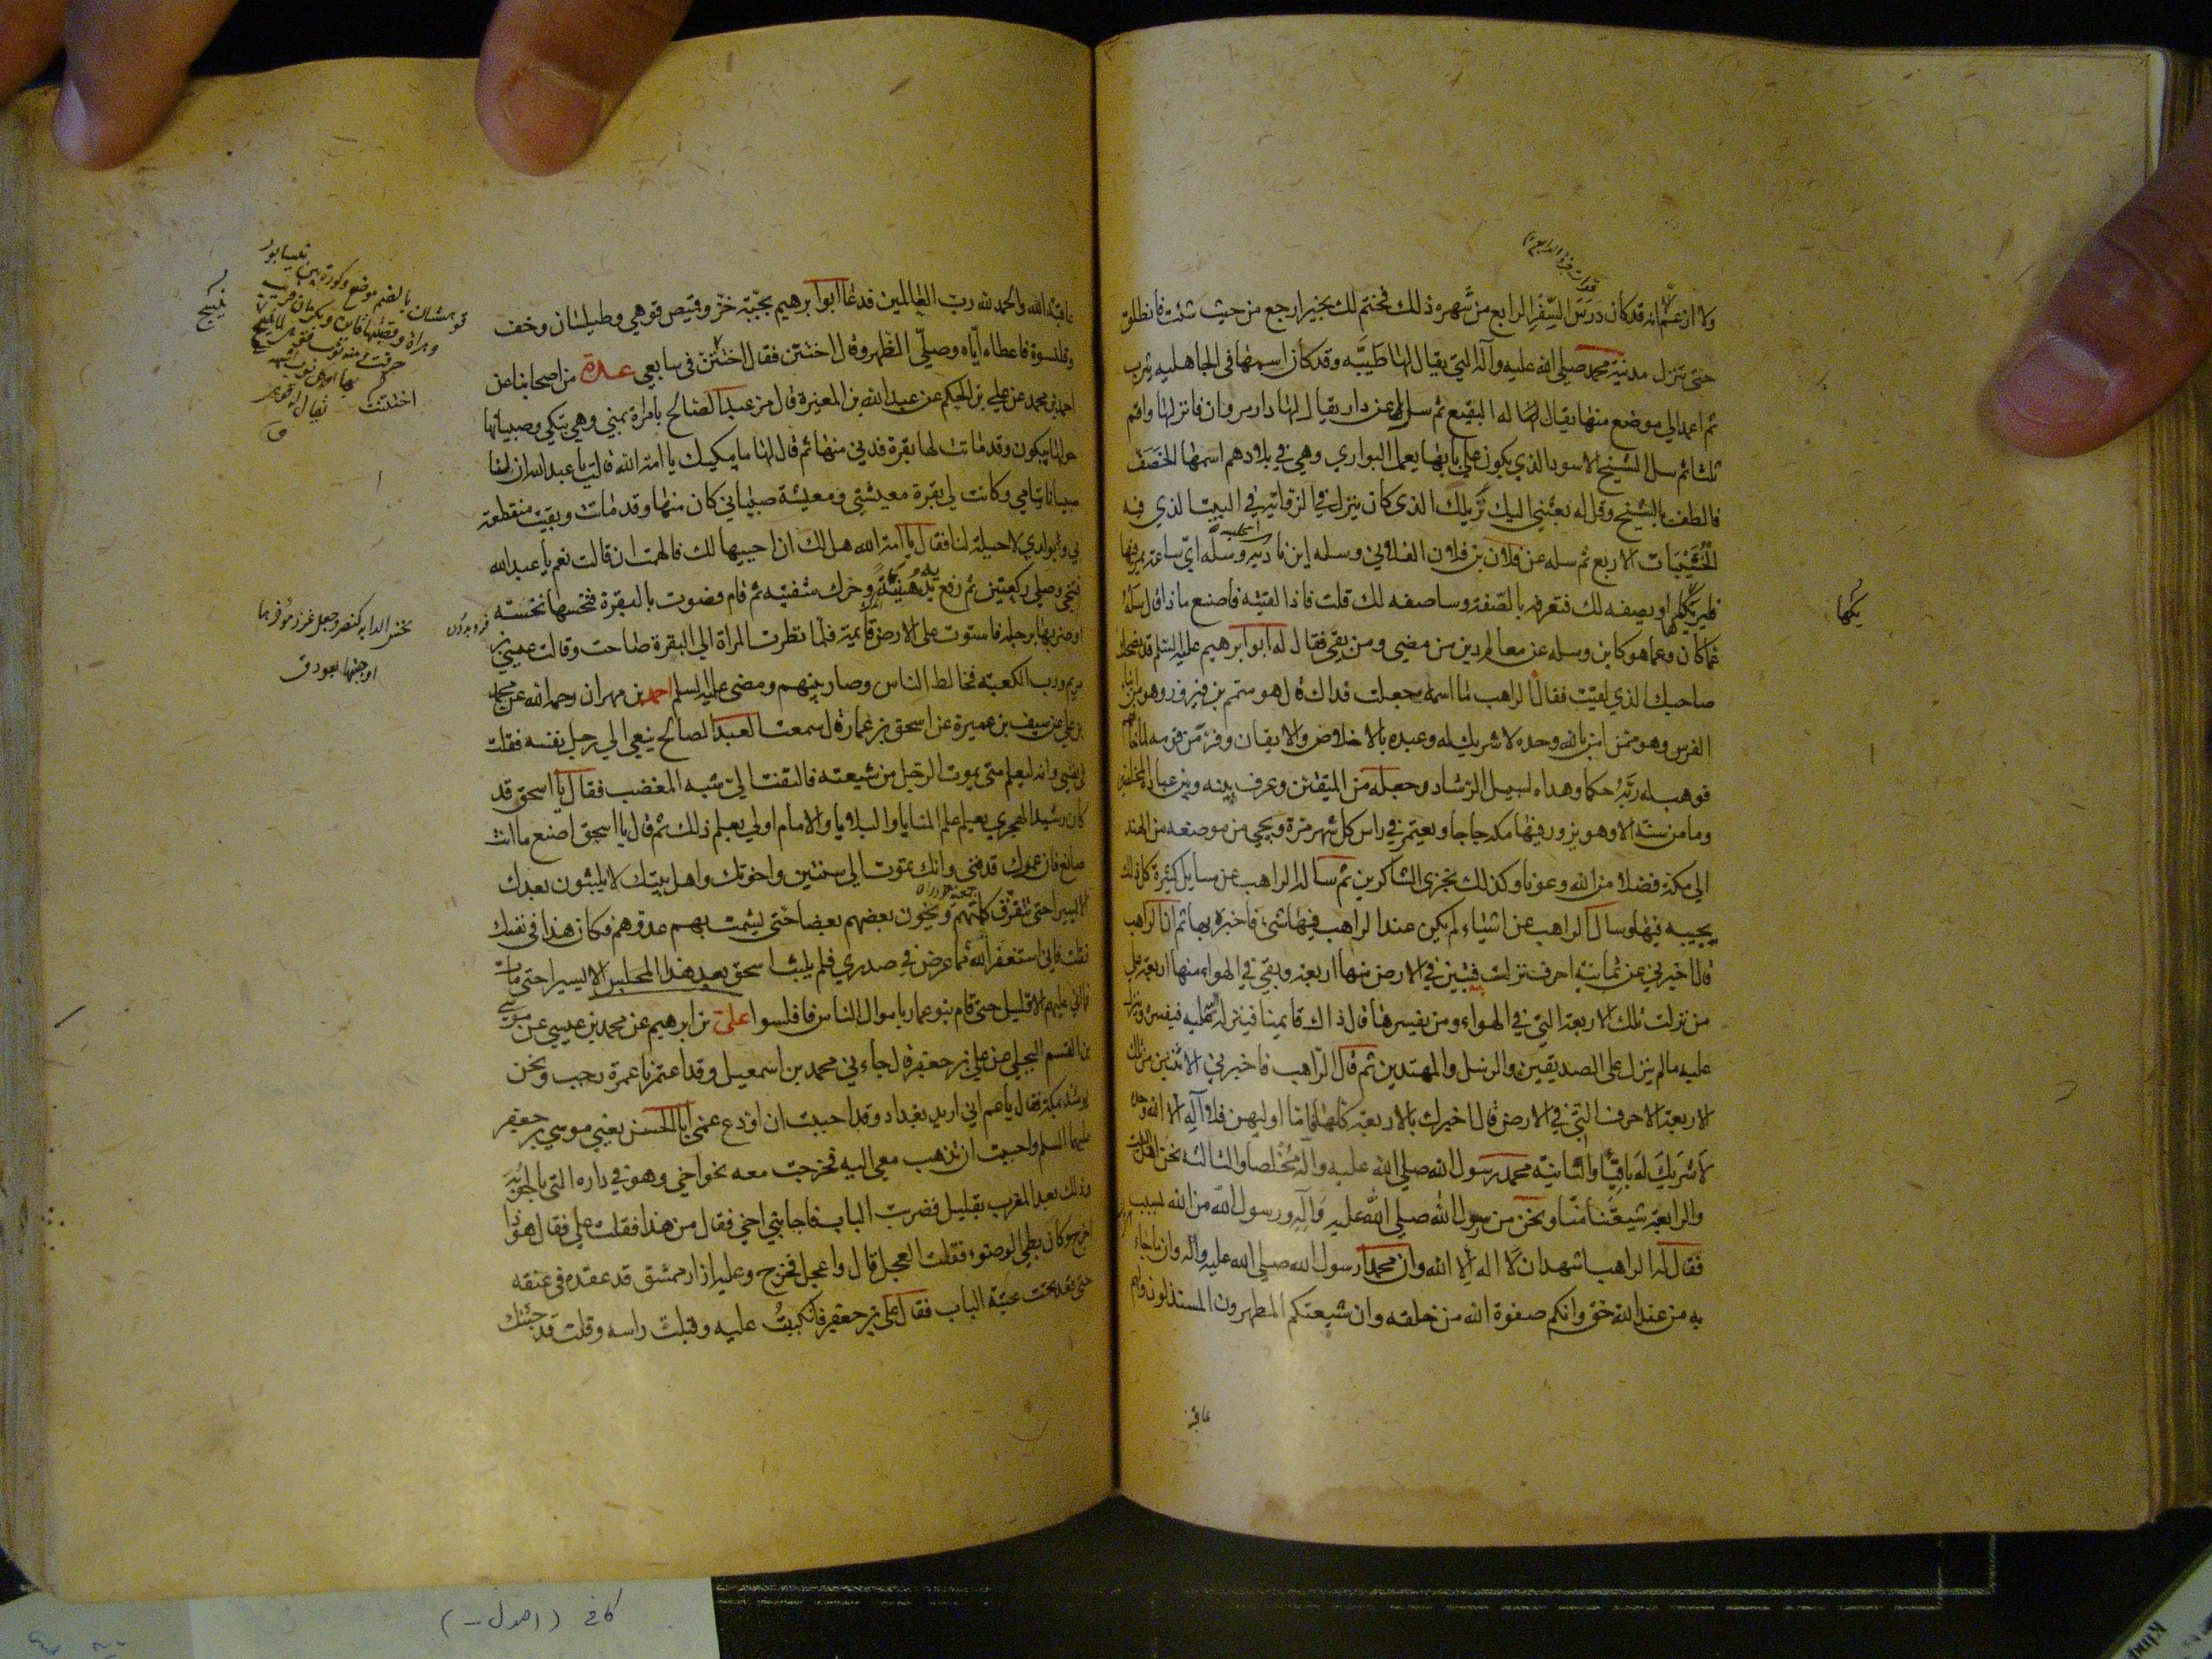 ولا ازعم انه قد كان دَرَسَ السِّفْر الرابع من شهره ذلك فختم لك بخير ارجع من حيث شئت فانطلق
حتى تنزل مدينة محمد صلى الله عليه وآله التي يقال لها طَيْبَه وقد كان اسمها في الجاهليه يثرب
ثم اعمد الى موضع منها يقال له البقيع ثم سل عن دار يقال لها دار مروان فانزلها واقم
ثلثا ثم سل الشيخ الاسود الذي يكون على بابها يعمل البواري وهي في بلادهم اسمها الخَصَف
فالطف بالشيخ وقل له بعثني اليك نَزيلك الذي كان ينزل في الزاوية في البيت الذي فيه
الْخُشَيْبات الاربع ثم سله عن فلان بن فلان الفلاني وسله اين ناديه وسله اي ساعة يمر فيها
فليريكها او يصفه لك فتعرفه بالصفة وساصفه لك قلت فاذا لقيته فاصنع ماذا قال سله
عما كان وعما هو كاين وسله عن معالم دين من مضى ومن بقي فقال له ابو ابرهيم عليه السلم قد نصحك
صاحبك الذي لقيت فقال الراهب ما اسمه جعلت فداك قال هو متمم بن فيروز وهو من ابناء
الفرس وهو ممن امن بالله وحده لا شريك له وعبده بالاخلاص والايقان وفر من قومه لما خافهم
فوهب له ربه حكما وهداه لسبيل الرشاد وجعله من المتقين وعرف بينه وبين عباده المخلصين
وما من سنة الا وهو يزور فيها مكه حاجا ويعتمر في راس كل شهر مرة ويجي من موضعه من الهند
الى مكة فضلا من الله وعونا وكذلك يجزى الشاكرين ثم ساله الراهب عن مسايل كثيرة كل ذلك
يجيبه فيها وسال الراهب عن اشياء لم يكن عند الراهب فيها شيء فاخبره بها ثم ان الراهب
قال اخبرني عن ثمانية احرف نزلت فتبين في الارض منها اربعة وبقي في الهواء منها اربعة على
من نزلت تلك الاربعة التي في الهواء ومن يفسرها قال ذاك قايمنا فينزله الله عليه فيفسره وينزل
عليه مالم ينزل على الصديقين والرسل والمهتدين ثم قال الراهب فاخبرني الاثنين من تلك
الاربعة الاحرف التي في الارض قال اخبرك بالاربعة كلها اما اوليهن فلا آله الا الله وحده
لا شَريكَ له باقيًا والثانية محمد رسول الله صلى الله عليه وآله مُخلصا والثالثه نحن اهل البيت
والرابعة شيعتنا منا ونحن من رسول الله صلى الله عليه وآله ورسول الله من الله بسبب
فقال له الراهب اشهد ان لا اله الا الله وان محمدا رسول الله صلى الله عليه وآله وان ما جاء
به من عند الله حق وانكم صفوة الله من خلقه وان شيعتكم المطهرون المستذلون ولهم
عاقبة
عاقبة الله والحمد لله رب العالمين فدعا ابو ابرهيم بجُبّة خزّ وقميص قوهي وطيلسان وخف
وقلنسوة فاعطاه اياه وصلّى الظهر وقال اختتن فقال اختتنت في سابعي عدة من اصحابنا عن
احمد بن محمد عن علي بن الحكم عن عبد الله بن المغيرة قال مر عبد الصالح بامراة بمنى وهي تبكي وصبيانها
حولها يبكون وقد ماتت لها بقرة فدنى منها ثم قال لها ما يبكيك يا امة الله قالت يا عبد الله ان لنا
صبيانا يتامى وكانت لي بقرة معيشتي ومعيشة صبياني كان منها وقد ماتت وبقيت منقطعة
بي وبولدي لا حيلة لنا فقال يا امة الله هل لك ان احييها لك فالهمت ان قالت نعم يا عبد الله
فتنحى وصلى ركعتين ثم رفع يده هُنَيْئَةً وحرك شفتيه ثم قام فصوت بالبقرة فنخسها نخسة
او ضربها برجله فاستوت على الارض قايمة فلما نظرت المراة الى البقرة صاحت وقالت عيسى بن
مريم ورب الكعبة فخالط الناس وصار بينهم ومضى عليه السلم احمد بن مهران رحمه الله عن محمد
بن علي عن سيف بن عميرة عن اسحق بن عمار قال سمعت العبد الصالح ينعي الى رجل نفسه فقلت
في نفسي وانه ليعلم متى يموت الرجل من شيعته فالتفت الي شبه المغضب فقال يا اسحق قد
كان رشيد الهجري يعلم علم المنايا والبلايا والامام اولى بعلم ذلك ثم قال يا اسحق اصنع ما انت
صانع فان عمرك قد فني وانك تموت الى سنتين واخوتك واهل بيتك لا يلبثون بعدك
الا يسيرا حتى تتفرق كلمتهم ويخون بعضهم بعضا حتى يشمت بهم عدوهم فكان هذا في نفسك
فقلت فاني استغفر الله مما عرض في صدري فلم يلبث اسحق بعد هذا المجلس الا يسيرا حتى مات
فما اتى عليهم الا قليل حتى قام بنو عمار باموال الناس فافلسوا علي بن ابرهيم عن محمد بن عيسى عن موسى
بن القسم البجلي عن علي بن جعفر قال جاءني محمد بن اسمعيل وقد اعتمرنا عمرة رجب ونحن
يومئذ بمكة فقال يا عم اني اريد بغداد وقد احببت ان اودع عمي ابا الحسن يعني موسى بن جعفر
عليهما السلم واحببت ان تذهب معي اليه فخرجت معه نحو اخي وهو في داره التي بالحَوْبَة
وذلك بعد المغرب بقليل فضربت الباب فاجابني اخي فقال من هذا فقلت علي فقال هو ذا
اخرج وكان بطي الوضوء فقلت العجل قال واعجل فخرج وعليه ازار ممشق قد عقده في عنقه
حتى قعد تحت عتبة الباب فقال علي بن جعفر فانكببتُ عليه وقبلت راسه وقلت قد جئتك
قوهستان بالضم موضع وكورة بين نيسابور
وهراة وقصبتها قاين
اختتنت
او جنبها بعود ق
يكها
كافي (اصول -)